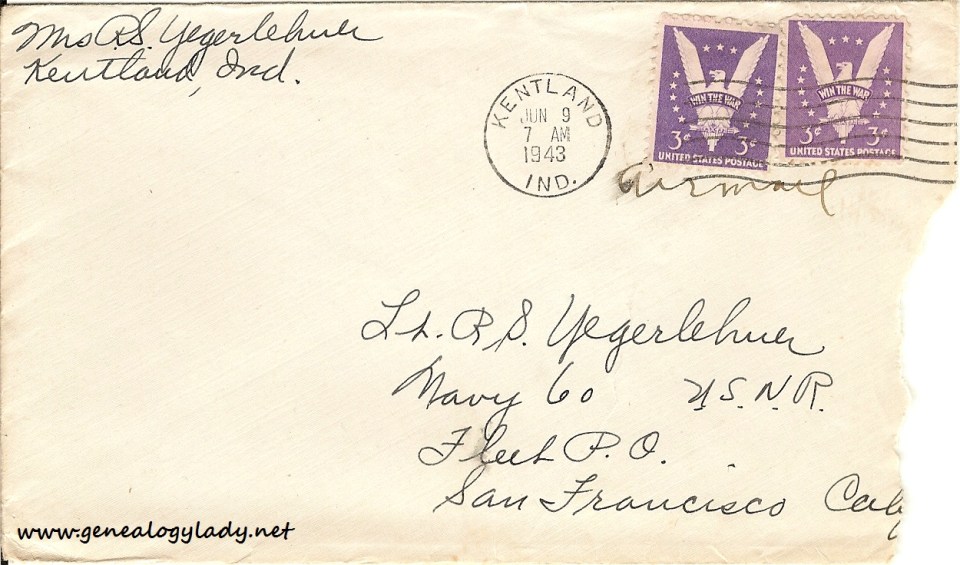 Mrs R.S. Yegerlehner
Kentland, Ind.
KENTLAND
JUN 9
7 AM
1943
IND.
WIN THE WAR
3¢ 3¢
UNITED STATES POSTAGE
WIN THE WAR
3¢ 3¢
UNITED STATES POSTAGE
Airmail
Lt. R.S. Yegerlehner
Navy 60 U.S.N.R.
Fleet P.O.
San Francisco Calif
www.genealogylady.net